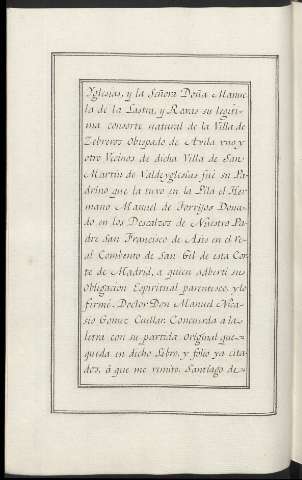 Yglesias, y la Señora Doña Manue-
la de la Lastra, y Roxas su legiti-
ma consorte natural de la Villa de
Zebreros Obispado de Avila vno, y
otro Vecinos de dicha Villa de San
Martin de Valdeyglesias fue su Pa-
drino que la tuvo en la Pila el Her-
mano Manuel de Torrijos Dona-
do en los Descalzos de Nuestro Pa-
dre San Francisco de Asis en el Re-
al Combento de San Gil de esta Cor-
te de Madrid, a quien adberti su
obligacion Espiritual parentesco, y lo
firmé. Doctor Don Manuel Nica-
sio Gomez Cuellar. Concuerda a la
letra con su partida original que
queda en dicho Libro, y folio ya cita-
dos, á que me remito. Santiago de